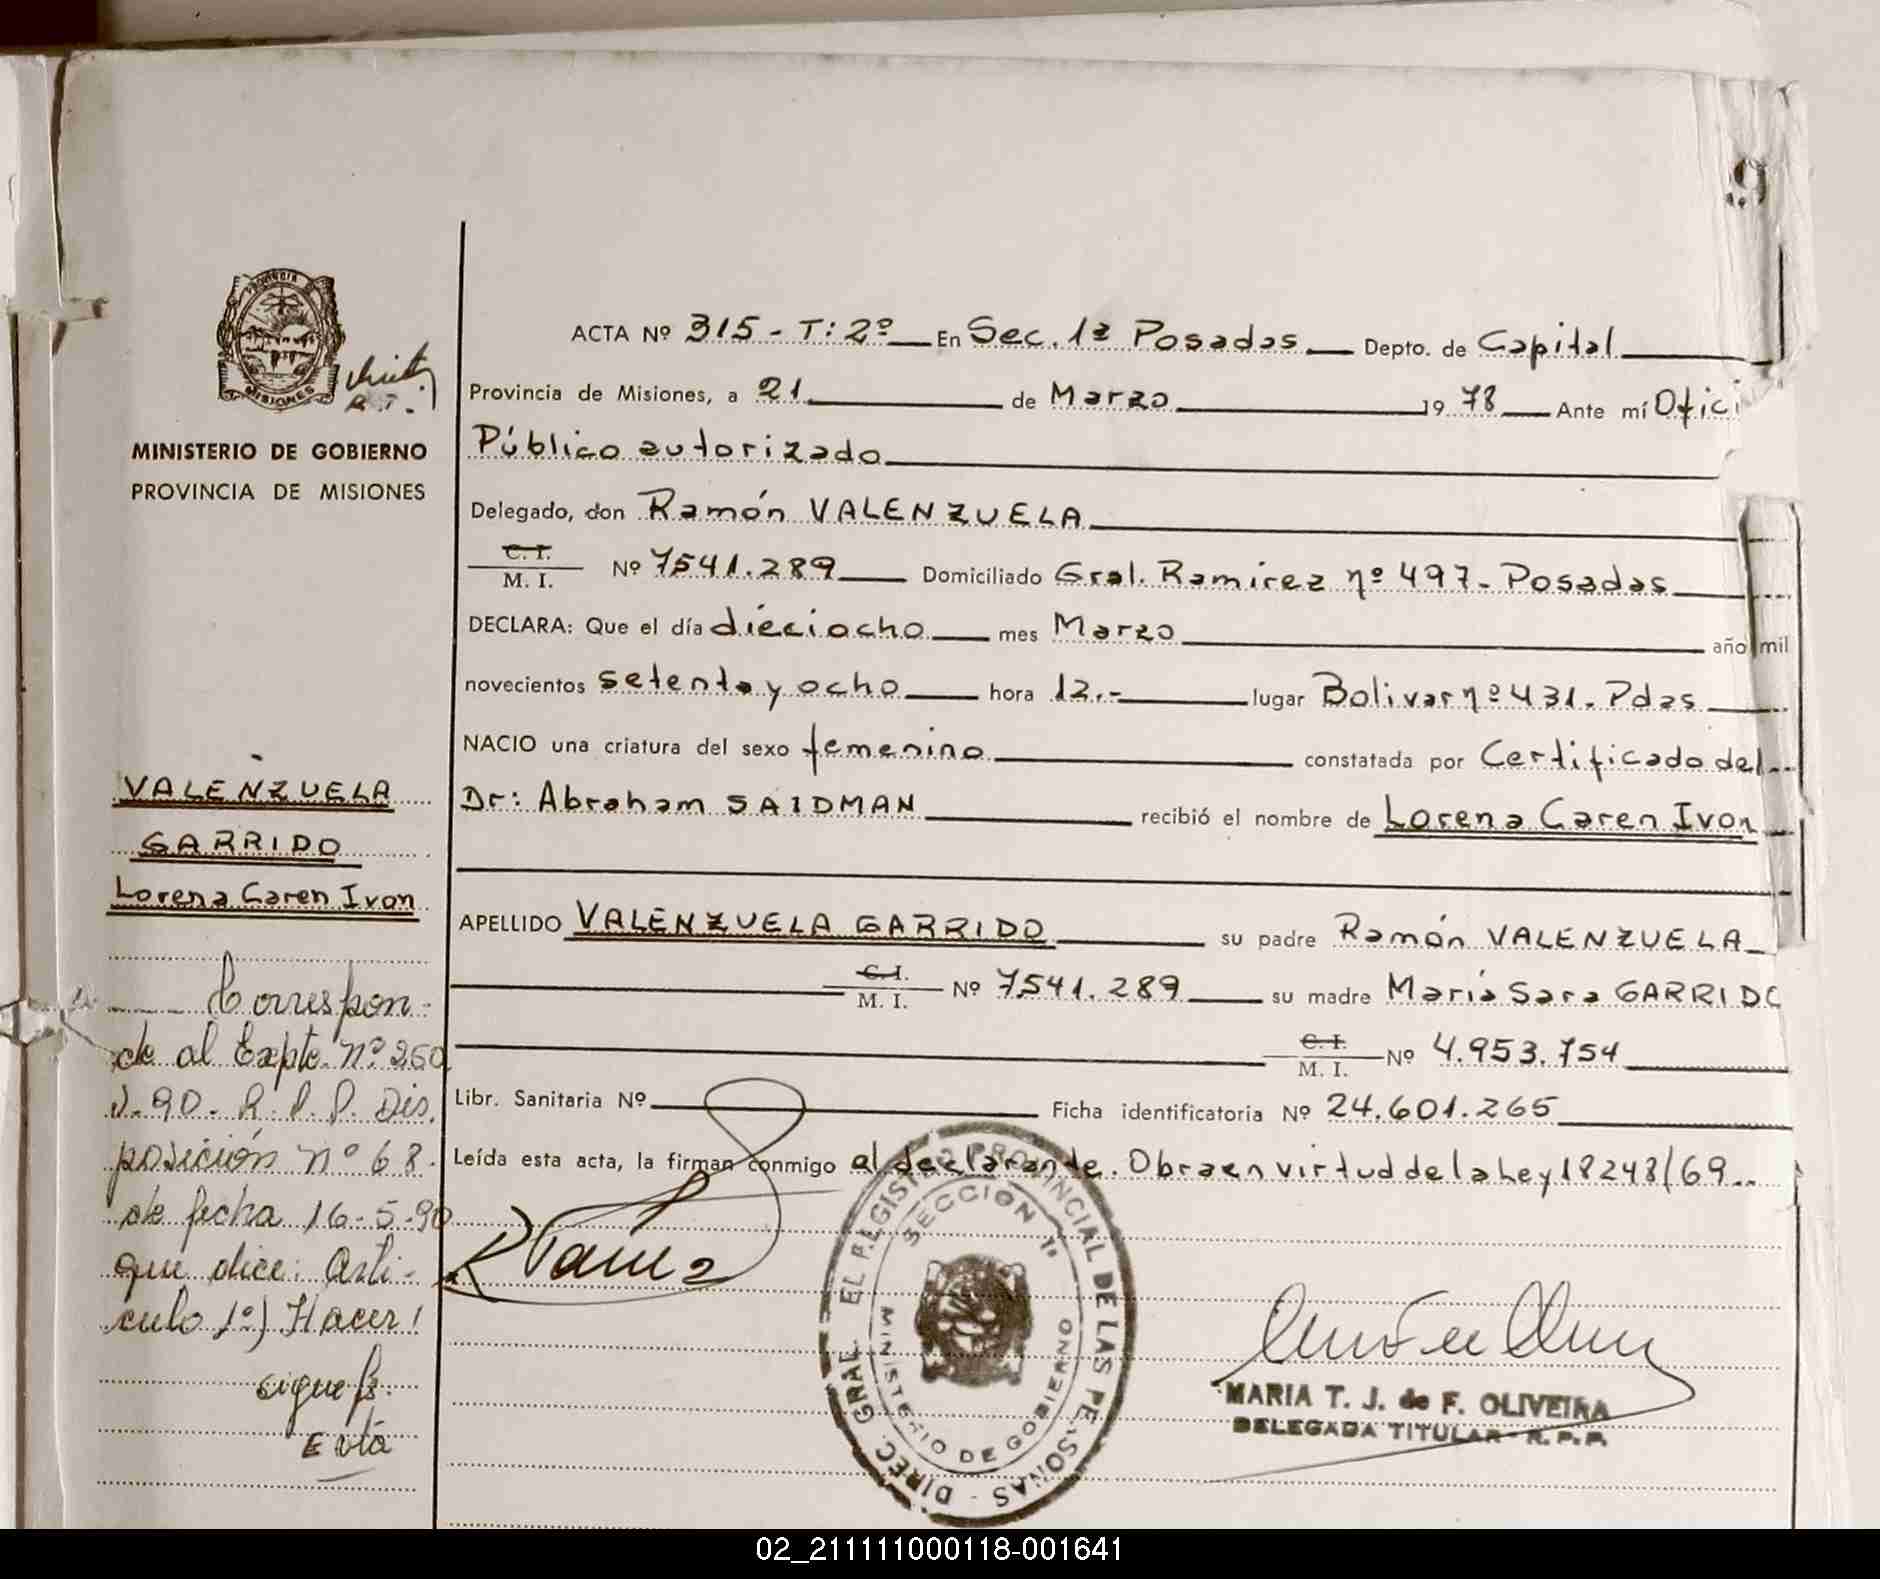 PROVINCIA
MISIONES
MINISTERIO DE GOBIERNO
PROVINCIA DE MISIONES
VALENZUELA
GARRIDO
Lorena Caren Ivon
Correspon-
de al Expte. Nº 260
J-90- R.P.P. Dis.
posición nº 68-
de fecha 16-5-90
que dice: Artí-
culo 1º) Hacer
sigue fs.
Evta
9
ACTA Nº 315 - T: 2º En Sec. 1ª Posadas Depto. de Capital
Provincia de Misiones, a 21 de Marzo 19 78 Ante mí Ofici
Público autorizado
Delegado, don Ramón VALENZUELA
C. I.
M. I. Nº 7541.289 Domiciliado Gral. Ramirez nº 497- Posadas
DECLARA: Que el día dieciocho mes Marzo año mil
novecientos setenta y ocho hora 12.- lugar Bolivar nº 431. Pdas
NACIO una criatura del sexo femenino constatada por Certificado del
Dr: Abraham SAIDMAN recibió el nombre de Lorena Caren Ivon
APELLIDO VALENZUELA GARRIDO su padre Ramón VALENZUELA
C. I.
M. I. Nº 7.541.289 su madre María Sara GARRIDO
C. I.
M. I. Nº 4.953.754
Libr. Sanitaria Nº Ficha identificatoria Nº 24.601.265
Leída esta acta, la firman conmigo el declarante. Obra en virtud de la Ley 18248/69..
DIREC. GRAL. EL REGISTRO PROVINCIAL DE LAS PERSONAS
SECCION 1ª
MINISTERIO DE GOBIERNO
MARIA T. J. de F. OLIVEIRA
DELEGADA TITULAR - R.P.P.
02_211111000118-001641